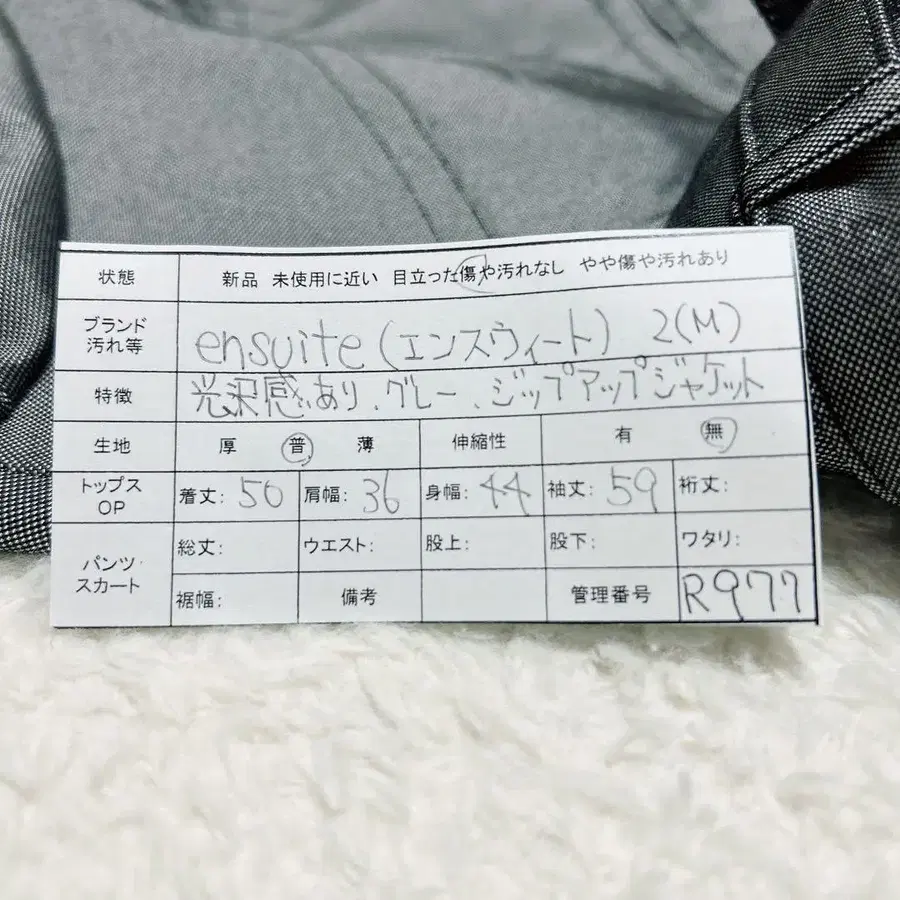 状態 新品 未使用に近い 目立った傷や汚れなし やや傷や汚れあり
ブランド 汚れ等 ensuite (エンスウィート) 2(M)
特徴 光沢感あり、グレー、ジップアップジャケット
生地 厚 普 薄 伸縮性 有 無
トップス OP 着丈: 50 肩幅: 36 身幅: 44 袖丈: 59 裄丈:
パンツ・スカート 総丈: ウエスト: 股上: 股下: ワタリ:
裾幅: 備考 管理番号 R977